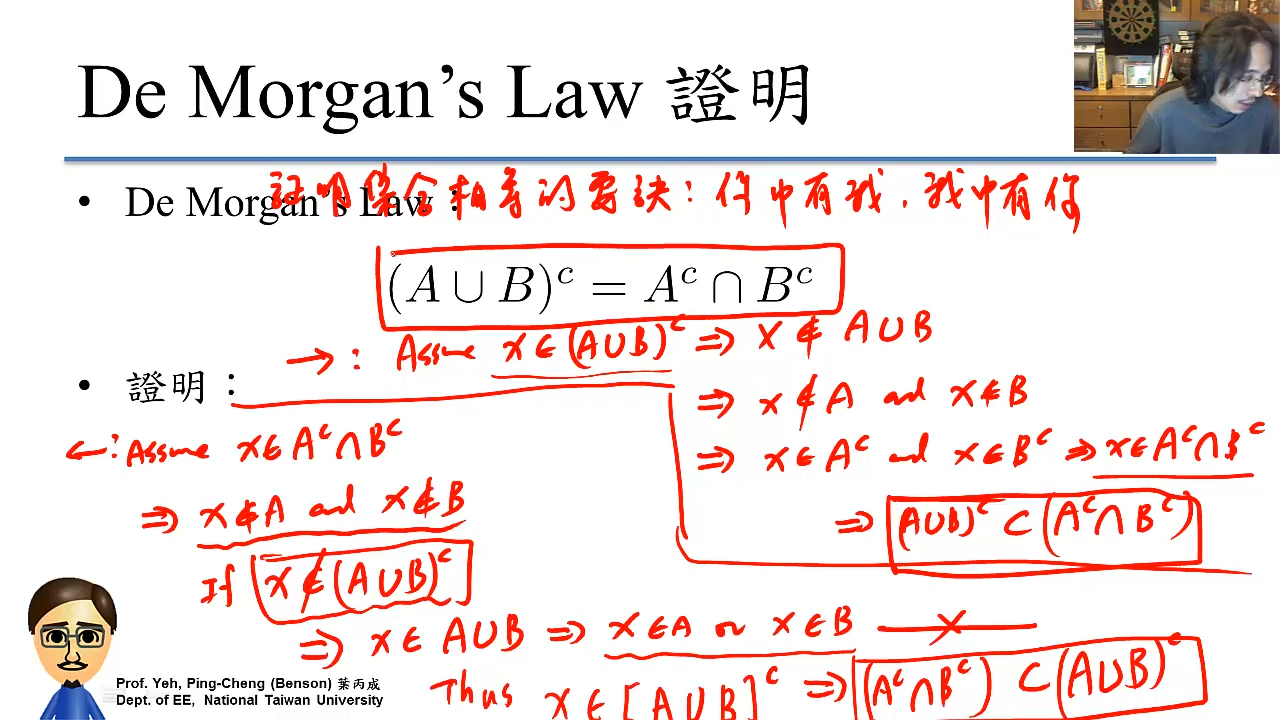 De Morgan's Law 證明
• De Morgan's Law：
証明集合相等的要訣：你中有我，我中有你
(A ∪ B)ᶜ = Aᶜ ∩ Bᶜ
→: Assume x∈(A∪B)ᶜ ⇒ x∉A∪B
⇒ x∉A and x∉B
⇒ x∈Aᶜ and x∈Bᶜ ⇒ x∈Aᶜ∩Bᶜ
⇒ (A∪B)ᶜ ⊂ (Aᶜ∩Bᶜ)
• 證明：
←: Assume x∈Aᶜ∩Bᶜ
⇒ x∉A and x∉B
If x∉(A∪B)ᶜ
⇒ x∈A∪B ⇒ x∈A or x∈B
Thus x∈[A∪B]ᶜ ⇒ (Aᶜ∩Bᶜ) ⊂ (A∪B)ᶜ
Prof. Yeh, Ping-Cheng (Benson) 葉丙成
Dept. of EE, National Taiwan University